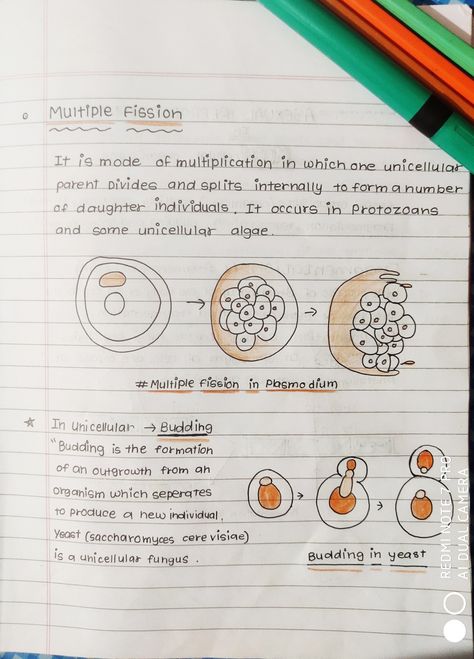 Multiple Fission
It is mode of multiplication in which one unicellular
parent Divides and splits internally to form a number
of daughter individuals. It occurs in Protozoans
and some unicellular algae.
#Multiple Fission in Plasmodium
In Unicellular → Budding
"Budding is the formation
of an outgrowth from an
organism which seperates
to produce a new individual,
Yeast (saccharomyces cerevisiae)
is a unicellular fungus.
Budding in yeast
REDMI NOTE 7 PRO
AI DUAL CAMERA